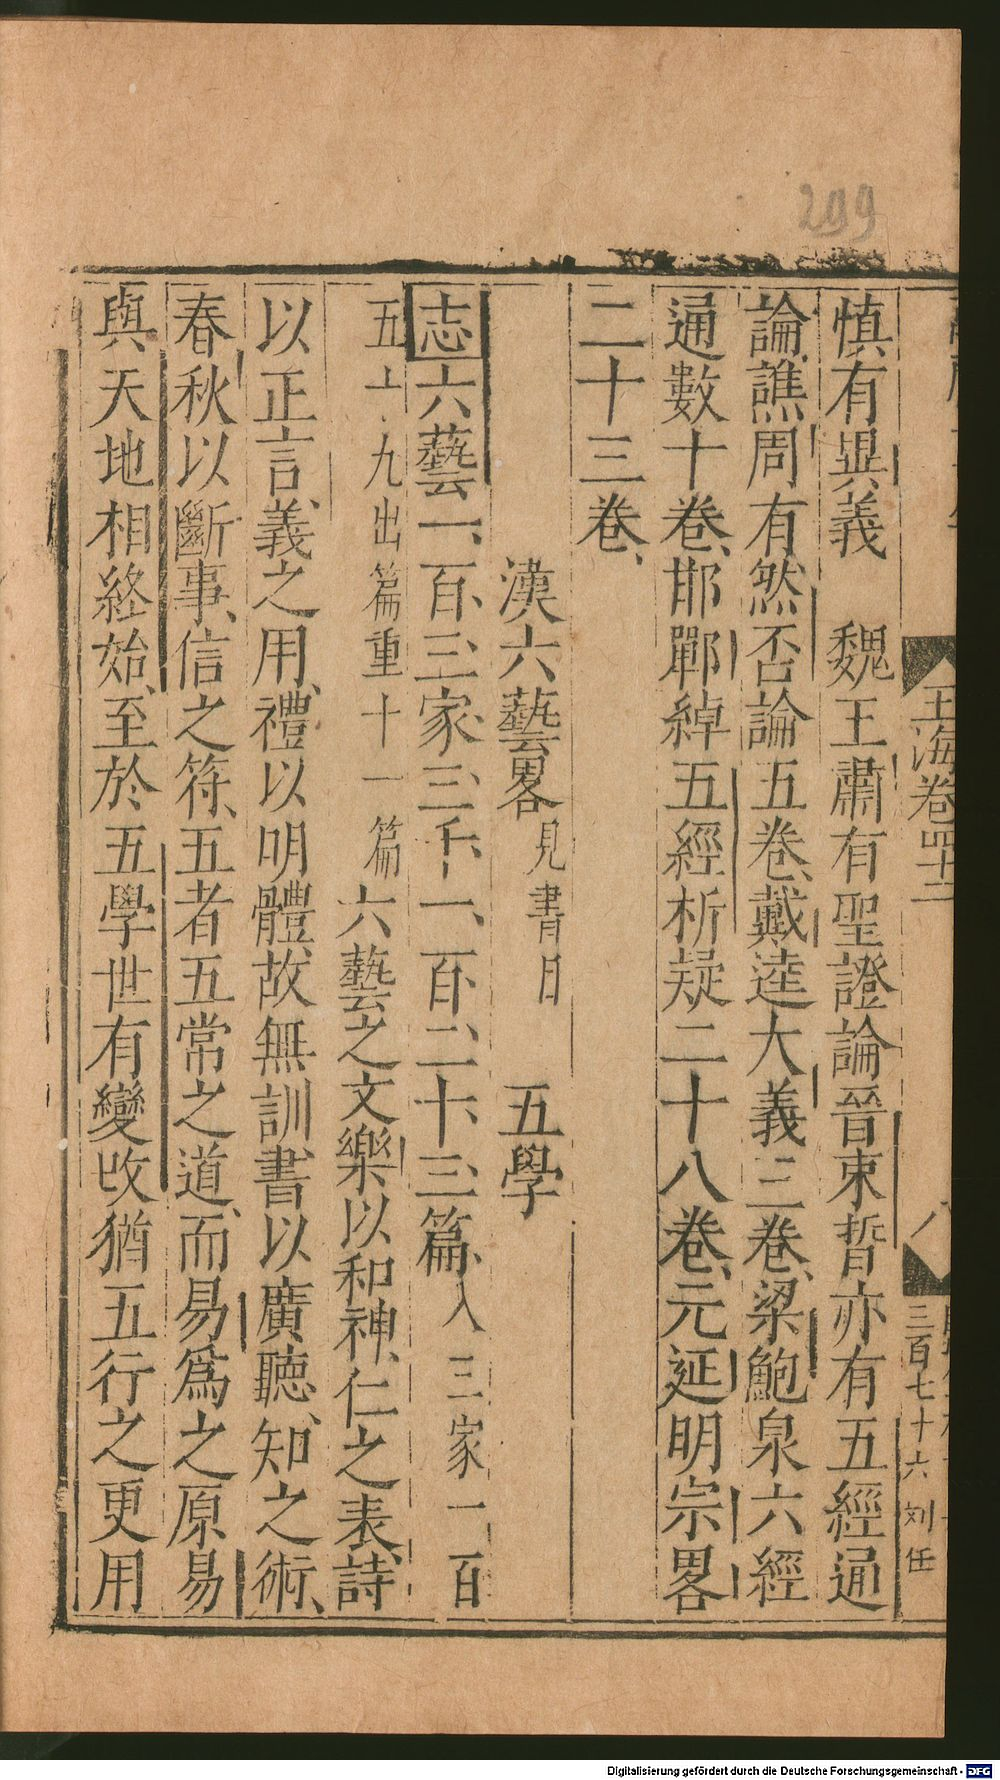 299
玉海卷四十二
八
三百七十六 刘任
慎有異義 魏王肅有聖證論晉束晳亦有五經通
論譙周有然否論五卷戴逵大義三卷梁鮑泉六經
通數十卷邯鄲綽五經析疑二十八卷元延明宗畧
二十三卷
漢六藝畧見書目 五學
志六藝一百三家三千一百二十三篇入三家一百
五十九出篇重十一篇六藝之文樂以和神仁之表詩
以正言義之用禮以明體故無訓書以廣聽知之術
春秋以斷事信之符五者五常之道而易爲之原易
與天地相終始至於五學世有變改猶五行之更用
Digitalisierung gefördert durch die Deutsche Forschungsgemeinschaft - DFG